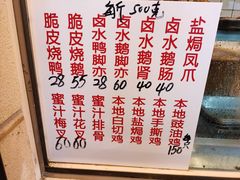 500克
脆皮烧鸭
脆皮烧鹅
55
卤水鸭脚亦
38
卤水鹅脚亦
60
卤水鹅肾
40
卤水鹅肠
40
盐焗凤爪
蜜汁梅叉
60
蜜汁花叉
60
蜜汁排骨
本地白切鸡
本地盐焗鸡
本地手撕鸡
本地豉油鸡
150